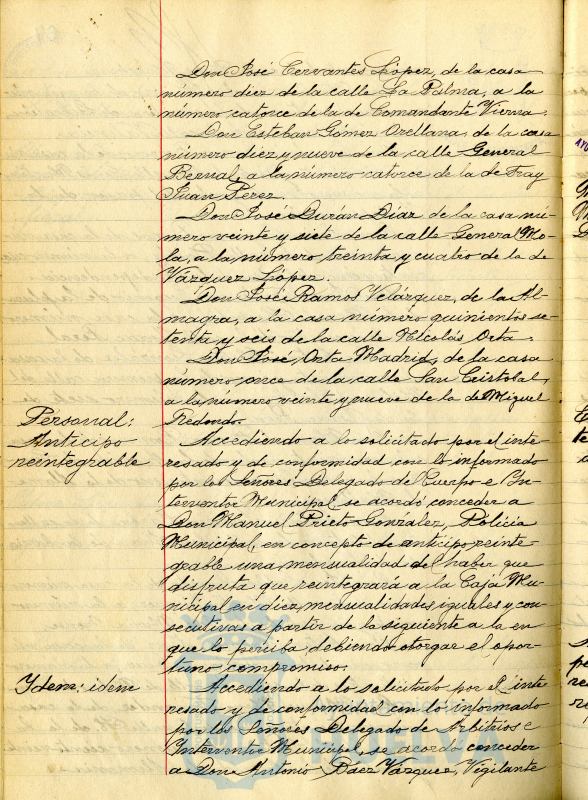 Don José Cervantes López, de la casa
número diez de la calle La Palma, a la
número catorce de la de Comandante Vierna.
Don Esteban Gómez Orellana, de la casa
número diez y nueve de la calle General
Bernal, a la número catorce de la de Fray
Juan Pérez.
Don José Durán Díaz de la casa nú-
mero veinte y siete de la calle General Mo-
la, a la número treinta y cuatro de la de
Vázquez López.
Don José Ramos Velázquez, de la Al-
magra, a la casa número quinientos se-
tenta y seis de la calle Nicolás Orta.
Don José Orta Madrid, de la casa
número once de la calle San Cristobal,
a la numero veinte y nueve de la de Miguel
Redondo.
Personal:
Anticipo
reintegrable
Accediendo a lo solicitado por el inte-
resado y de conformidad con lo informado
por los Señores Delegado del Cuerpo e In-
terventor Municipal, se acordó conceder a
Don Manuel Prieto Gonzalez, Policía
Municipal, en concepto de anticipo reinte-
grable una mensualidad del haber que
disfruta que reintegrará a la Caja Mu-
nicipal en diez mensualidades iguales y con-
secutivas a partir de la siguiente a la en
que lo perciba debiendo otorgar el opor-
tuno compromiso.
Ydem: idem
Accediendo a lo solicitado por el inte-
resado y de conformidad con lo informado
por los Señores Delegado de Arbitrios e
Interventor Municipal, se acordó conceder
a Don Antonio Báez Vázquez, Vigilante